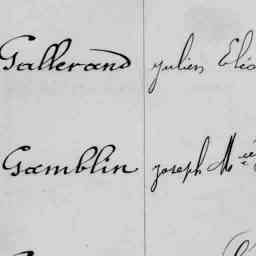 Gallerand julien
Gamblin joseph M